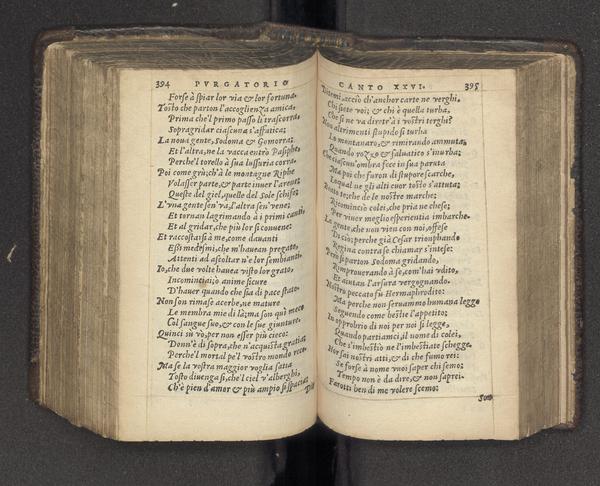 394 PVRGATORIO
Forse à spiar lor via & lor fortuna.
Tosto che parton l'accoglienza amica,
Prima che'l primo passo li trascorra,
Sopragridar ciascuna s'affatica;
La noua gente, Sodoma & Gomorra;
Et l'altra, ne la vacca entrò Pasiphe,
Perche'l torello à sua lussuria corra.
Poi come grù; ch'à le montagne Riphe
Volasser parte, & parte inuer l'arene;
Queste del giel, quelle del Sole schife;
L'vna gente sen'va, l'altra sen'vene;
Et tornan lagrimando à i primi canti,
Et al gridar, che più lor si conuene:
Et raccostarsi à me, come dauanti
Essi medesmi, che m'hauean pregato,
Attenti ad ascoltar ne'lor sembianti.
Io, che due volte hauea visto lor grato,
Incominciai; ò anime sicure
D'hauer quando che sia di pace stato;
Non son rimase acerbe, ne mature
Le membra mie di là; ma son quì meco
Col sangue suo, & con le sue giunture.
Quinci sù vò, per non esser più cieco:
Donn'è di sopra, che n'acquista gratia;
Perche'l mortal pe'l vostro mondo reco.
Ma se la vostra maggior voglia satia
Tosto diuenga sì, che'l ciel v'alberghi,
Ch'è pien d'amor & più ampio si spatia;
CANTO XXVI. 395
Ditemi, acciò ch'anchor carte ne verghi,
Chi siete voi; & chi è quella turba,
Che sì ne va diretr'à i vostri terghi?
Non altrimenti stupido si turba
Lo montanaro, & rimirando ammuta,
Quando rozzo & saluatico s'inurba;
Che ciascun'ombra fece in sua paruta
Ma poi che furon di stupore scarche,
Loqual ne gli alti cuor tosto s'attuta;
Beato te; che de le nostre marche;
Ricominciò colei, che pria ne chese;
Per viuer meglio esperientia imbarche.
La gente, che non vien con noi, offese
Di ciò; perche già Cesar triomphando
Regina contra se chiamar s'intese;
Però si parton Sodoma gridando,
Rimprouerando à se, com'hai vdito,
Et aiutan l'arsura vergognando.
Nostro peccato fù Hermaphrodito:
Ma perche non seruammo humana legge
Seguendo come bestie l'appetito;
In opprobrio di noi per noi si legge,
Quando partiamci, il nome di colei,
Che s'imbestiò ne l'imbestiate schegge.
Hor sai nostri atti, & di che fumo rei:
Se forse à nome vuoi saper chi semo;
Tempo non è da dire, & non saprei.
Farotti ben di me volere scemo:
Son